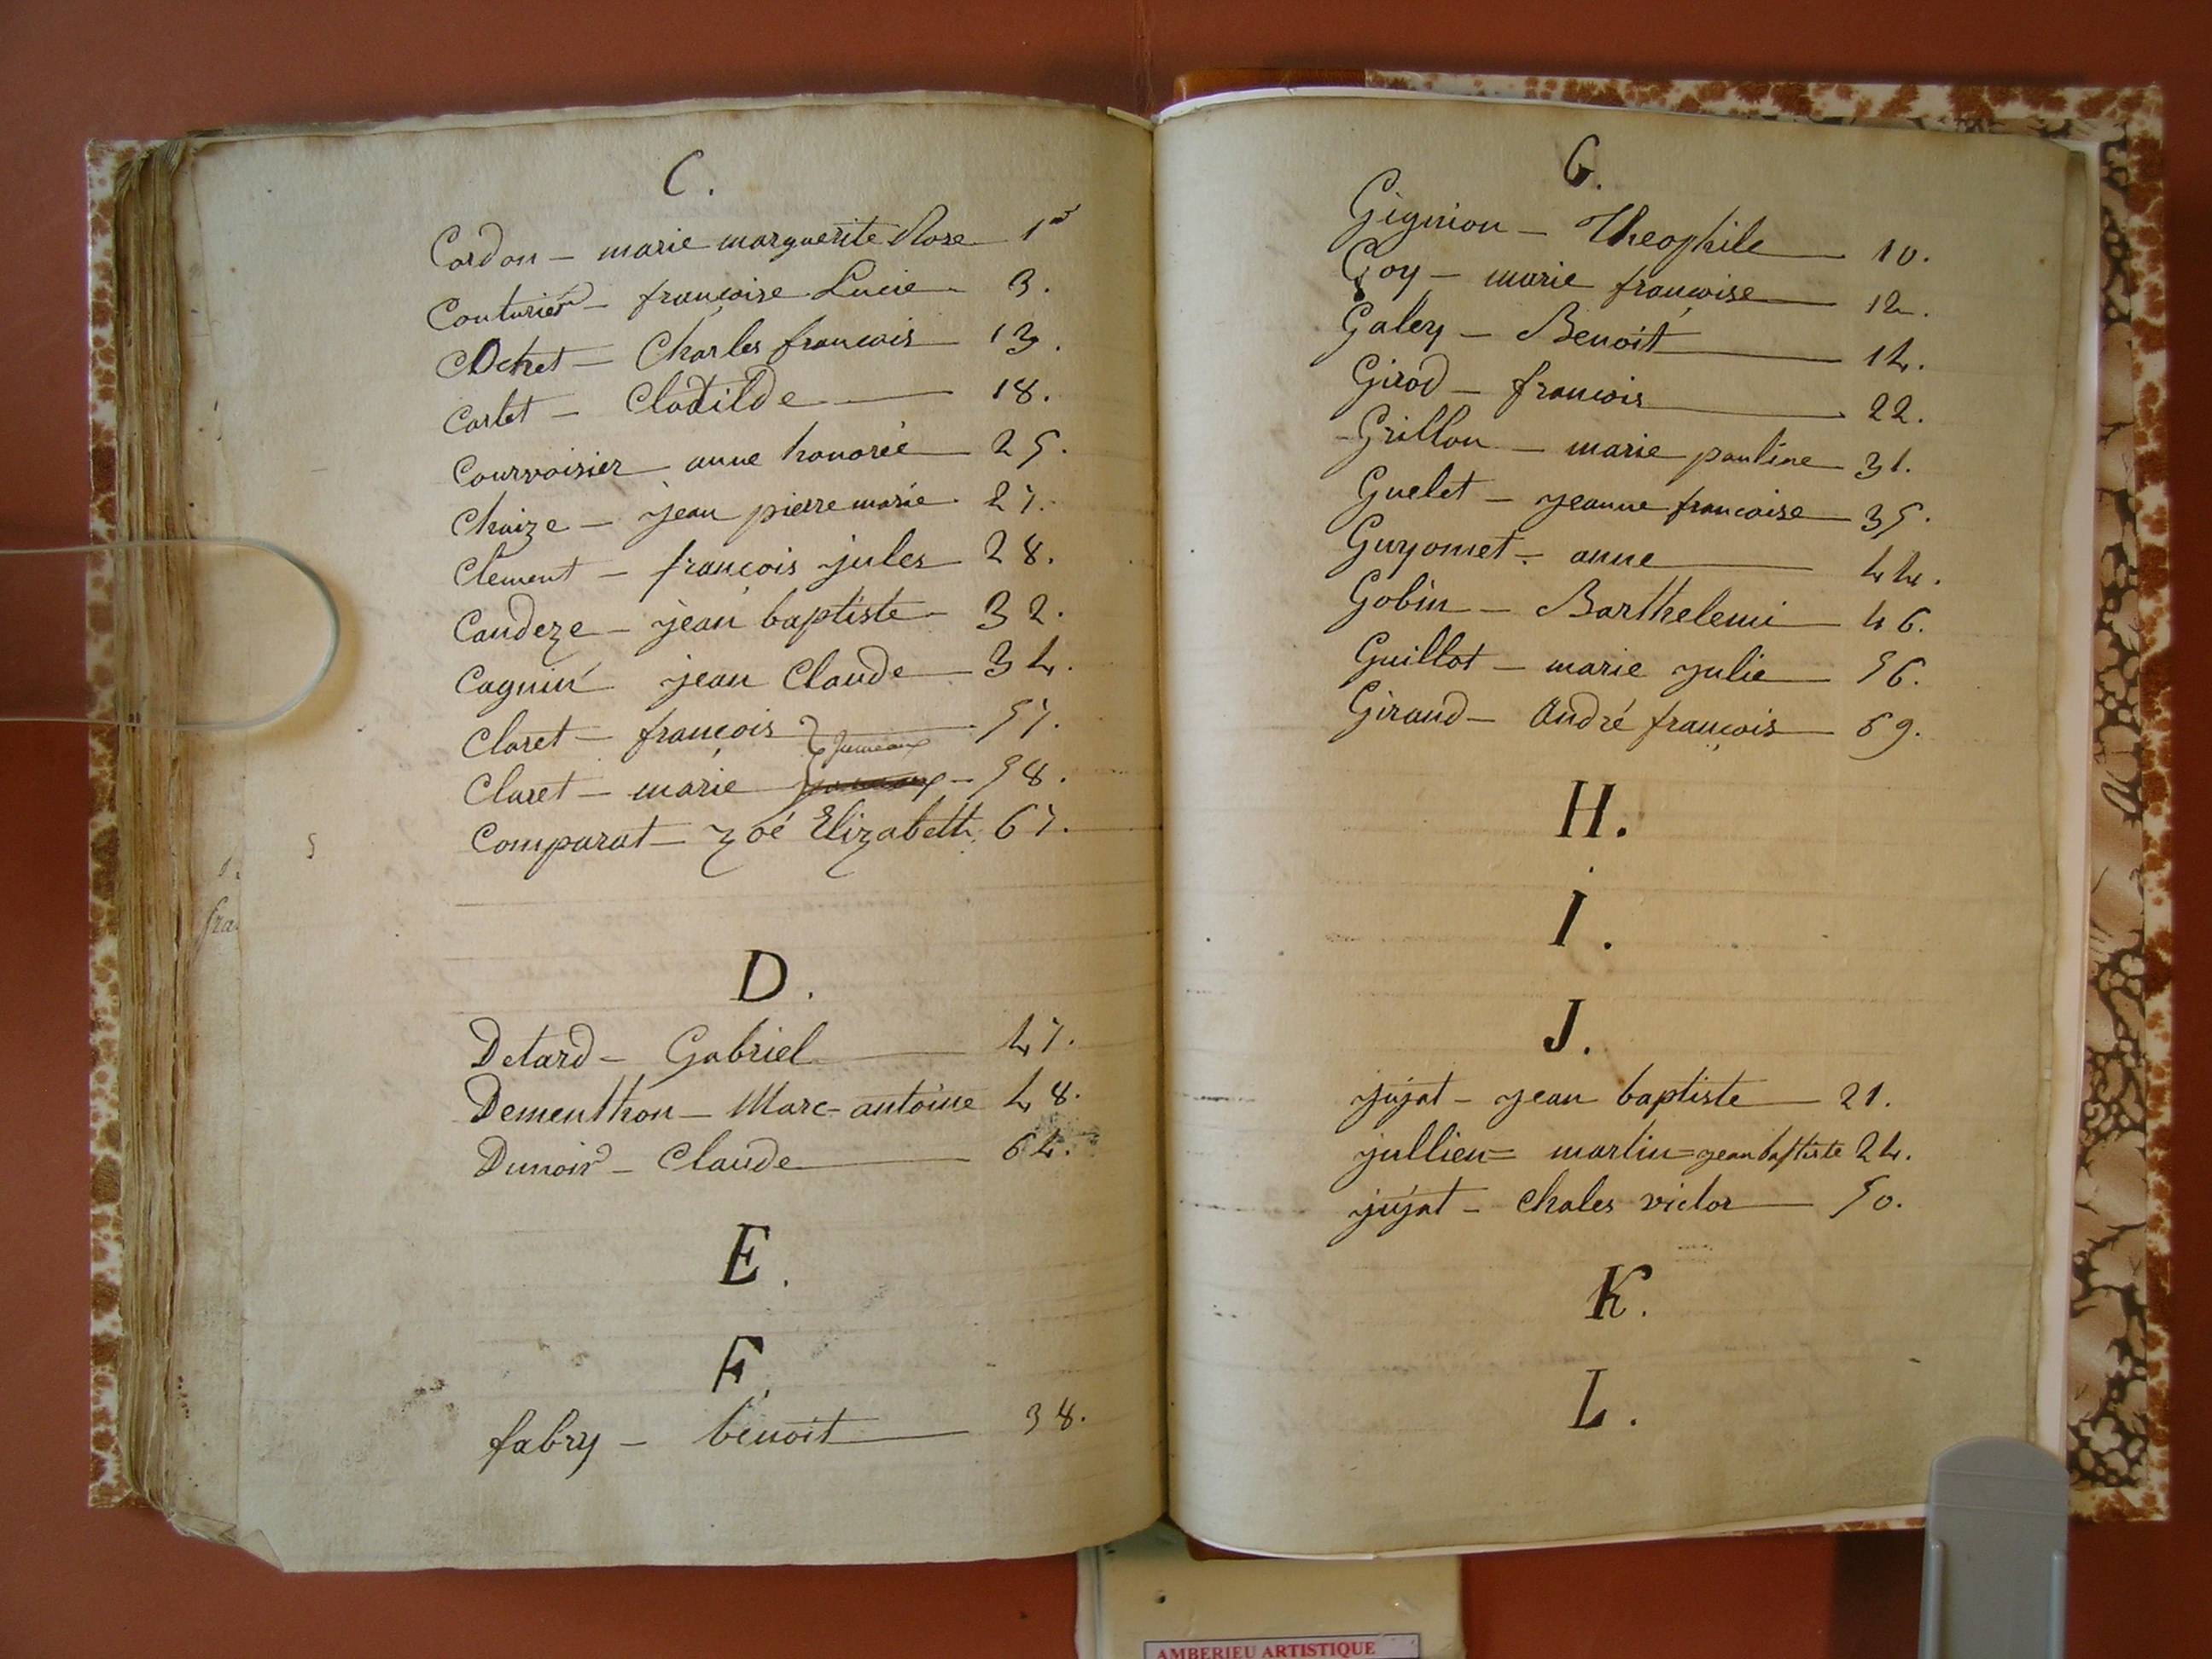 C.
Cordon - marie marguerite Rose 1er
Couturier - françoise Lucie 3.
COchet - Charles francois 13.
Carlet - Clotilde 18.
Courvoisier - anne honorée 25.
Chaize - jean pierre marie 27.
Clement - françois jules 28.
Candeze - jean baptiste 32.
Cagnin jean Claude 34.
Claret - françois 57.
Jumeaux
Claret - marie 58.
Comparat - Zoé Elizabeth 67.
D.
Detard - Gabriel 47.
Dementhon - Marc-antoine 48.
Dunoir - Claude 64.
E.
F.
fabry - benoit 38.
G.
Theophile 10.
Goy - marie françoise 12.
Galey - Benoit 14.
Girod - francois 22.
Grillon - marie pauline 31.
Guelet - jeanne francoise 35.
Guyomet - anne 44.
Gobin - Barthelemi 46.
Guillot - marie julie 56.
Giraud - André françois 69.
H.
I.
J.
jujat - jean baptiste 21.
jullien = martin = jean baptiste 24.
jujat - Chales victor 50.
K.
L.
fra
AMBERIEU ARTISTIQUE